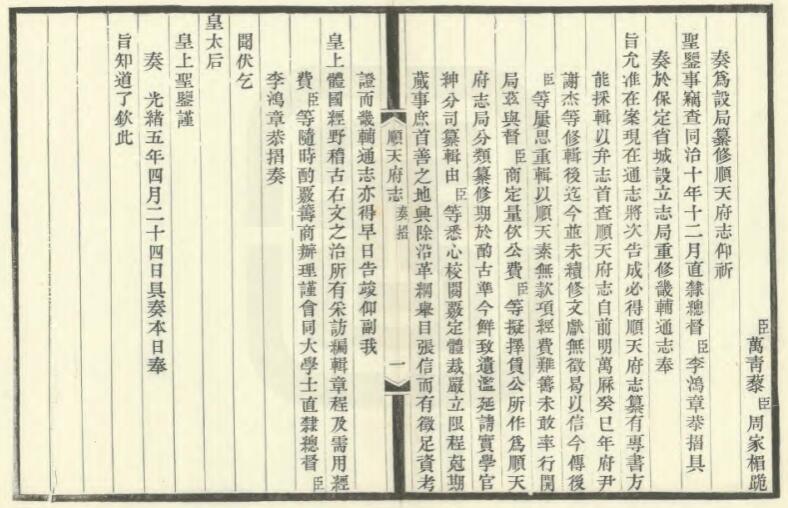 臣萬青藜臣周家楣跪
奏爲設局纂修順天府志仰祈
聖鑒事竊查同治十年十二月直隸總督臣李鴻章恭摺具
奏於保定省城設立志局重修畿輔通志奉
旨允准在案現在通志將次告成必得順天府志纂有專書方
能採輯以弁志首查順天府志自前明萬厤癸巳年府尹
謝杰等修輯後迄今並未續修文獻無徵曷以信今傳後
臣等屢思重輯以順天素無款項經費難籌未敢率行開
局茲與督臣商定量伙公費臣等擬擇賃公所作爲順天
府志局分類纂修期於酌古準今鮮致遺濫延請實學官
紳分司纂輯由臣等悉心校閱覈定體裁嚴立限程尅期
蕆事庶首善之地興除沿革綱舉目張信而有徵足資考
順天府志 奏摺 一
證而畿輔通志亦得早日告竣仰副我
皇上體國經野稽古右文之治所有采訪編輯章程及需用經
費臣等隨時酌覈籌商辦理謹會同大學士直隸總督臣
李鴻章恭摺奏
聞伏乞
皇太后
皇上聖鑒謹
奏 光緒五年四月二十四日具奏本日奉
旨知道了欽此